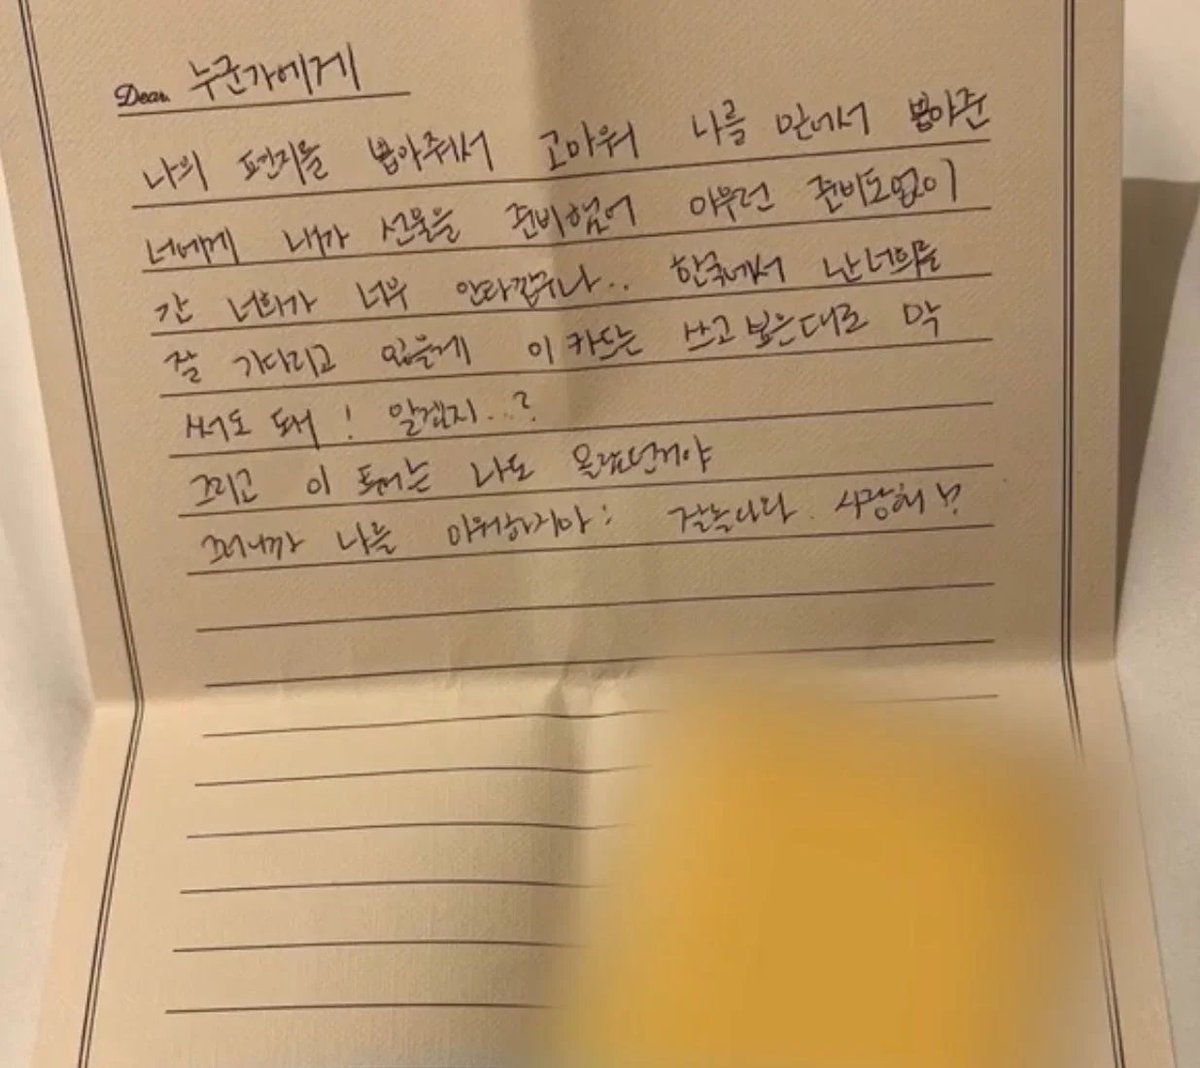 Dear. 누군가에게
나의 편지를 뽑아줘서 고마워 나를 믿어서 뽑아준
너에게 내가 선물을 준비했어 아무런 준비도없이
간 너희가 너무 안타깝구나.. 한국에서 난 너희를
잘 기다리고 있을게 이 카드는 쓰고 싶은대로 막
써도 돼! 알겠지...?
그리고 이 투어는 나도 몰랐던거야
그러니까 나를 미워하지마: 잘놀다와 사랑해